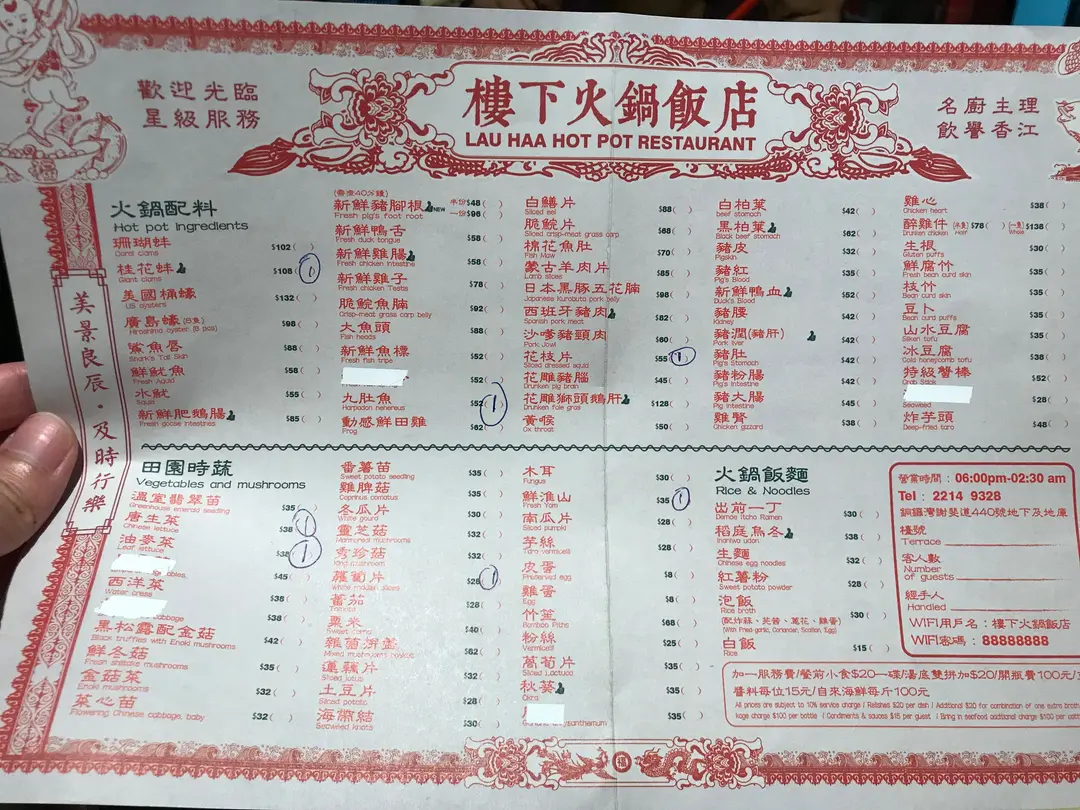 歡迎光臨
星級服務
樓下火鍋飯店
LAU HAA HOT POT RESTAURANT
名廚主理
飲譽香江
美景良辰·及時行樂
火鍋配料
Hot pot ingredients
珊瑚蚌 $102 ( )
Coral clams
桂花蚌 $108 (1)
Giant clams
美國桶蠔 $132 ( )
US oysters
廣島蠔 (8隻) $98 ( )
Hiroshima oyster (8 pcs)
鯊魚唇 $88 ( )
Shark's Tail Skin
鮮魷魚 $58 ( )
Fresh Aquid
水魷 $55 ( )
Squid
新鮮肥鵝腸 $85 ( )
Fresh goose intestines
(需煮40分鐘)
新鮮豬腳根 NEW 半份$48 ( )
Fresh pig's foot root 一份$96 ( )
新鮮鴨舌 $58 ( )
Fresh duck tongue
新鮮雞腸 $58 ( )
Fresh chicken intestine
新鮮雞子 $78 ( )
Fresh chicken Testis
脆鯇魚腩 $92 ( )
Crisp-meat grass carp belly
大魚頭 $88 ( )
Fish heads
新鮮魚標 $52 ( )
Fresh fish tripe
$52 ( )
九肚魚 $52 (1)
Harpadon nehereus
動感鮮田雞 $62 ( )
Frog
白鱔片 $88 ( )
Sliced eel
脆鯇片 $68 ( )
Sliced crisp-meat grass carp
棉花魚肚 $70 ( )
Fish Maw
蒙古羊肉片 $85 ( )
Lamb slices
日本黑豚五花腩 $98 ( )
Japanese Kurobuta pork belly
西班牙豬肉 $82 ( )
Spanish pork meat
沙嗲豬頸肉 $60 ( )
Pork Jowl
花枝片 $55 (1)
Sliced dressed squid
花雕豬腦 $45 ( )
Drunken pig brain
花雕獅頭鵝肝 $128 ( )
Drunken foie gras
黃喉 $50 ( )
Ox throat
白柏葉 $42 ( )
beef stomach
黑柏葉 $62 ( )
Black beef stomach
豬皮 $32 ( )
Pigskin
豬紅 $35 ( )
Pig's Blood
新鮮鴨血 $52 ( )
Duck's Blood
豬腰 $42 ( )
Kidney
豬潤(豬肝) $42 ( )
Pork liver
豬肚 $42 ( )
Pig's Stomach
豬粉腸 $42 ( )
Pig's intestine
豬大腸 $45 ( )
Pig intestine
雞腎 $38 ( )
Chicken gizzard
雞心 $38 ( )
Chicken heart
醉雞件 (半隻) $78 ( ) (一隻) $138 ( )
Drunken chicken Half Whole
生根 $30 ( )
Gluten puffs
鮮腐竹 $35 ( )
Fresh bean curd skin
枝竹 $35 ( )
Bean curd skin
豆卜 $35 ( )
Bean curd puffs
山水豆腐 $35 ( )
Silken tofu
冰豆腐 $38 ( )
Cold honeycomb tofu
特級蟹棒 $52 ( )
Crab Stick
$28 ( )
Seaweed
炸芋頭 $48 ( )
Deep-fried taro
田園時蔬
Vegetables and mushrooms
溫室翡翠苗 $35 ( )
Greenhouse emerald seedling
唐生菜 $38 (1)
Chinese lettuce
油麥菜 $38 (1)
Leaf lettuce
$45 ( )
西洋菜 $38 ( )
Water cress
$38 ( )
cabbage
黑松露配金菇 $42 ( )
Black truffles with Enoki mushrooms
鮮冬菇 $35 ( )
Fresh shiitake mushrooms
金菇菜 $32 ( )
Enoki mushrooms
菜心苗 $32 ( )
Flowering Chinese cabbage, baby
番薯苗 $35 ( )
Sweet potato seedling
雞脾菇 $35 ( )
Coprinus comatus
冬瓜片 $32 ( )
White gourd
靈芝菇 $32 ( )
Marmoreal mushrooms
秀珍菇 $32 ( )
蘿蔔片 $28 (1)
蕃茄 $28 ( )
Tomato
粟米 $40 ( )
Sweet corns
雜菌拼盤 $62 ( )
Mixed mushrooms
蓮藕片 $32 ( )
Sliced lotus
土豆片 $28 ( )
Sliced potato
海帶結 $30 ( )
Seaweed knots
木耳 $30 ( )
Fungus
鮮淮山 $35 (1)
Fresh Yam
南瓜片 $28 ( )
Sliced pumpki
芋絲 $28 ( )
Taro vermicelli
皮蛋 $8 ( )
Preserved egg
雞蛋 $8 ( )
Egg
竹笙 $68 ( )
Bamboo Piths
粉絲 $25 ( )
Vermicelli
萵筍片 $35 ( )
Sliced Lactuca
秋葵 $35 ( )
Okra
$35 ( )
火鍋飯麵
Rice & Noodles
出前一丁 $30 ( )
Demae Itcho Ramen
稻庭烏冬 $38 ( )
Inaniwa udon
生麵 $32 ( )
Chinese egg noodles
紅薯粉 $28 ( )
Sweet potato powder
泡飯 $30 ( )
Rice broth
白飯 $15 ( )
Rice
營業時間：06:00pm-02:30 am
Tel：2214 9328
銅鑼灣謝斐道440號地下及地庫
檯號
Terrace
客人數
Number
of guests
經手人
Handled
WIFI用戶名：樓下火鍋飯店
WIFI密碼：88888888
加一服務費/餐前小食$20一碟/湯底雙拼加$20/開瓶費100元/
醬料每位15元/自來海鮮每斤100元
All prices are subject to 10% service charge / Relishes $20 per dish / Additional $20 for combination of one extra broth
kage charge $100 per bottle / Condiments & sauces $15 per guest / Bring in seafood additional charge $100 per